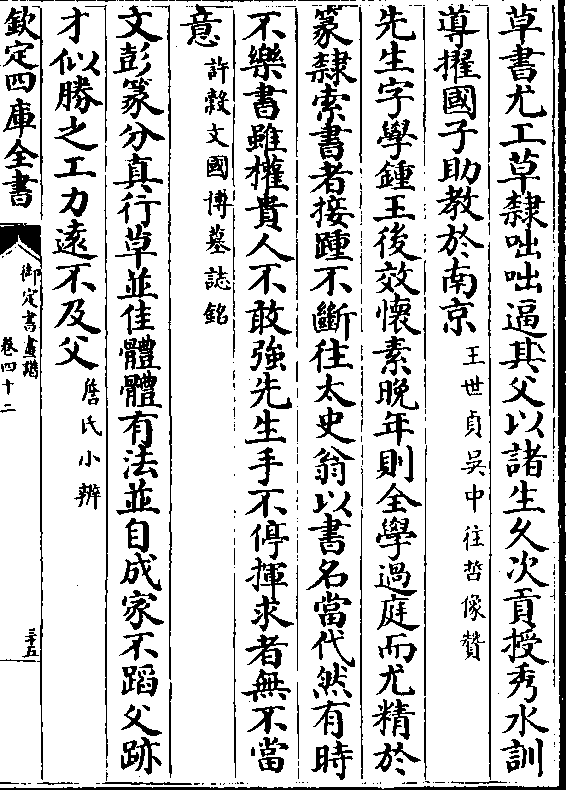 草書尤工草隸咄咄逼其父以諸生久次貢授秀水訓
導擢國子助教於南京王世貞吳中往哲像贊
先生字學鍾王後效懷素晚年則全學過庭而尤精於
篆隸索書者接踵不斷往太史翁以書名當代然有時
不樂書雖權貴人不敢強先生手不停揮求者無不當
意許穀文國博墓誌銘
文彭篆分真行草並佳體體有法並自成家不蹈父跡
才似勝之工力遠不及父詹氏小辨
欽定四庫全書
御定書畫譜
卷四十二
三十五